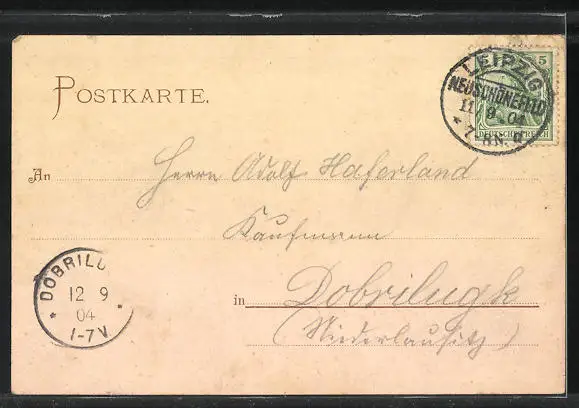 POSTKARTE.
5
DEUTSCHES REICH
LEIPZIG
NEUSCHÖNEFELD
11 9 04
* 7-8 N. d
An Herrn Adolf Haferland
Kaufmann
in Dobrilugk
(Niederlausitz)
DOBRILU
12 9
* 04 *
1-7 V